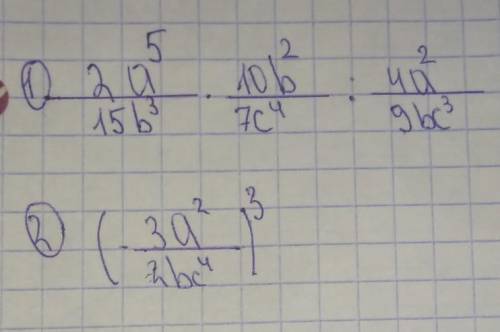 ① 2a⁵/15b³ · 10b²/7c⁴ : 4a²/9bc³
② (-3a²/2bc⁴)³